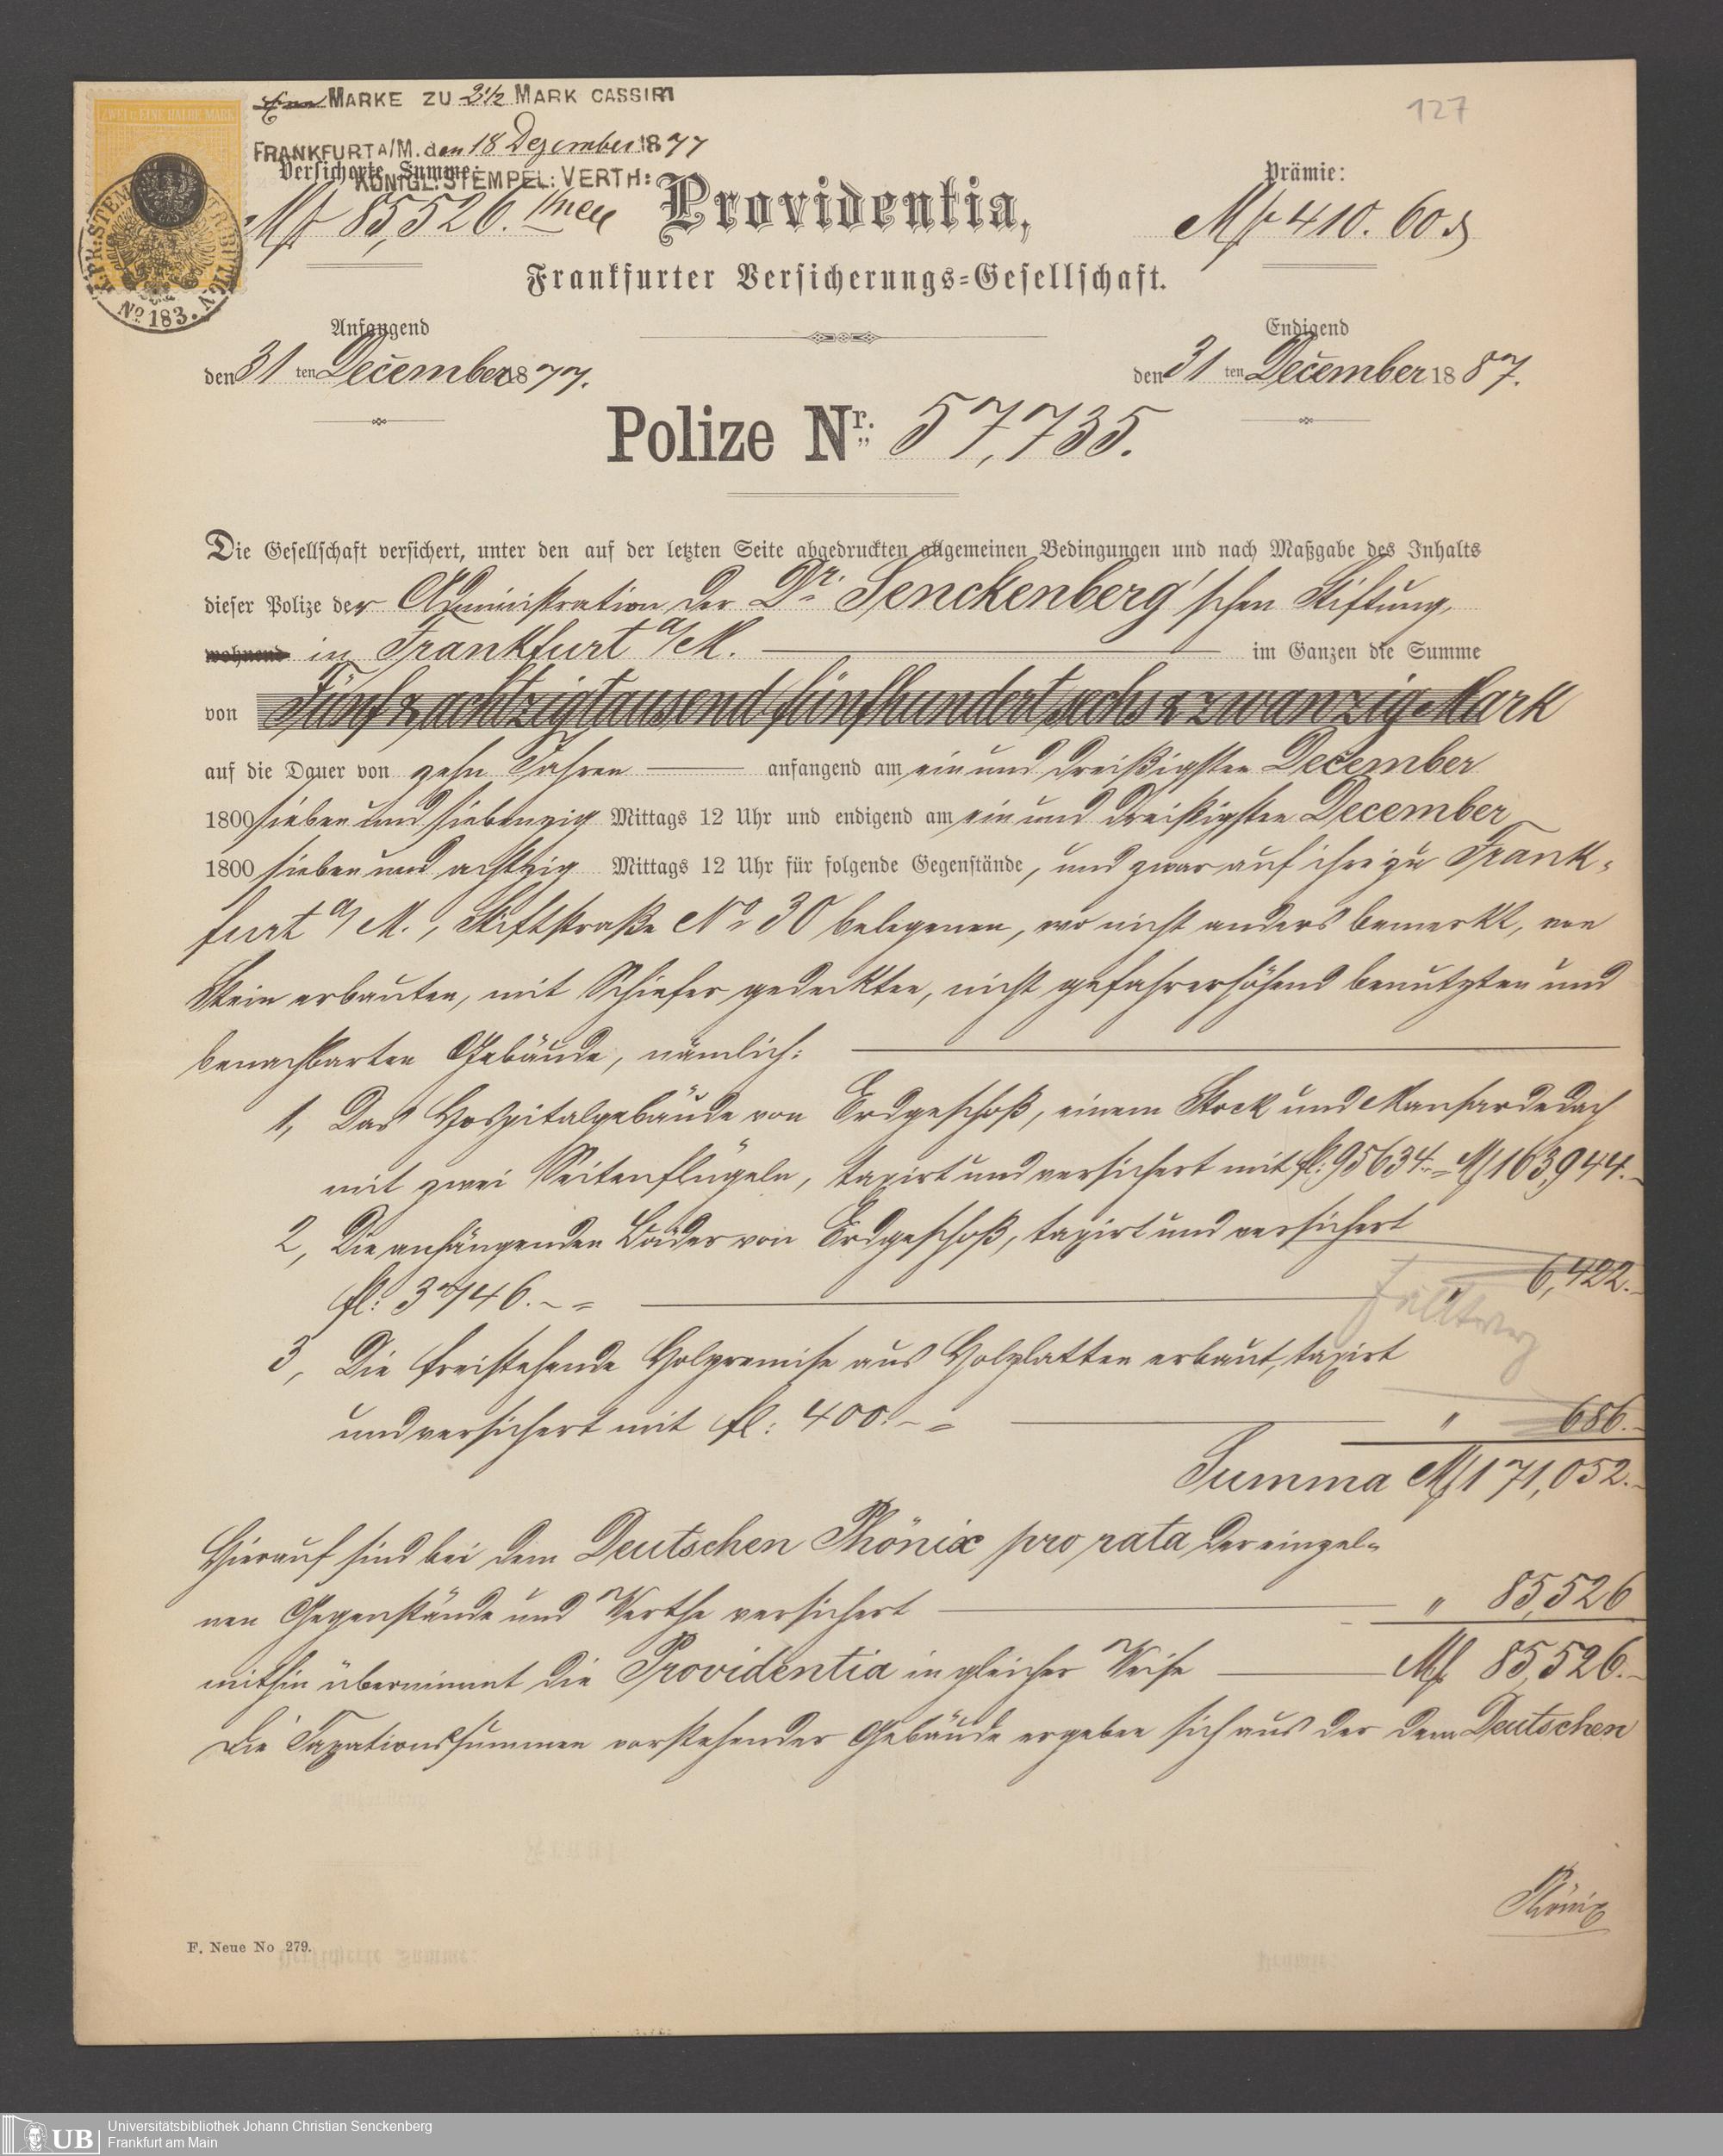 Eine MARKE ZU 2½ MARK CASSIRT
127
ZWEI U. EINE HALBE MARK
FRANKFURT A/M. den 18 Dezember 1877
Versicherte Summe:
KÖNIGL: STEMPEL: VERTH:
Prämie:
Mk 85,526.
Providentia,
Mk 410. 60 ₰
Frankfurter Versicherungs=Gesellschaft.
No 183.
Anfangend
Endigend
den 31 ten December 1877.
den 31 ten December 1887.
Polize Nr. 57,735.
Die Gesellschaft versichert, unter den auf der letzten Seite abgedruckten allgemeinen Bedingungen und nach Maßgabe des Inhalts
dieser Polize der Administration der Dr. Senckenberg'schen Stiftung,
wohnend in Frankfurt a/M. im Ganzen die Summe
von Fünf & achtzigtausend fünfhundert sechs & zwanzig Mark
auf die Dauer von zehn Jahren anfangend am ein und dreißigsten December
1800 sieben und siebenzig Mittags 12 Uhr und endigend am ein und dreißigsten December
1800 sieben und achtzig Mittags 12 Uhr für folgende Gegenstände, und zwar auf ihre zu Frank-
furt a/M., Stiftstraße No 30 belegenen, wo nicht anders bemerkt, von
Stein erbauten, mit Schiefer gedeckten, nicht gefahrerhöhend benutzten und
benachbarten Gebäude, nämlich:
1, Das Hospitalgebäude von Erdgeschoß, einem Stock und Mansardedach
mit zwei Seitenflügeln, taxirt und versichert mit fl: 95634.- = Mk 163,944.-
2, Die anhängenden Bäder von Erdgeschoß, taxirt und versichert
fl: 3746.- = " 6,422.-
fällt weg
3, Die freistehende Holzremise aus Holzlatten erbaut, taxirt
und versichert mit fl: 400.- = " 686.-
Summa Mk 171,052.-
Hierauf sind bei dem Deutschen Phönix pro rata der einzel-
nen Gegenstände und Werthe versichert " 85,526
mithin übernimmt die Providentia in gleicher Weise Mk 85,526.-
Die Taxationssummen vorstehender Gebäude ergeben sich aus der dem Deutschen
Phönix
F. Neue No 279.
UB
Universitätsbibliothek Johann Christian Senckenberg
Frankfurt am Main